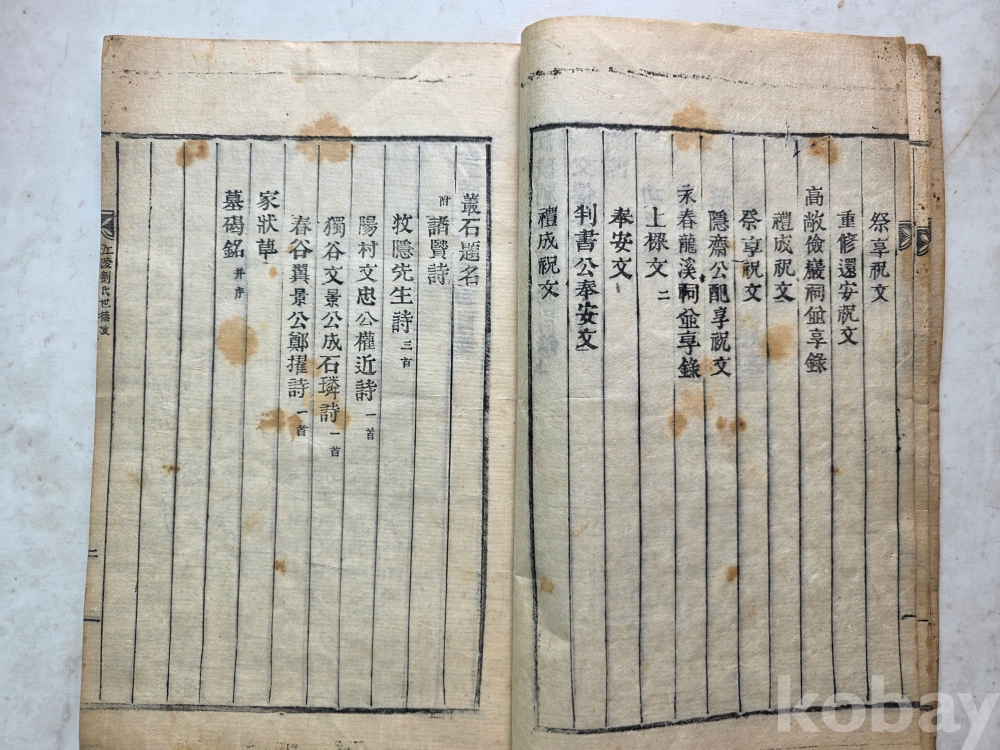 祭享祝文
重修還安祝文
高敞儉巖祠並享錄
禮成祝文
祭享祝文
隱齋公配享祝文
永春龍溪祠並享錄
上樑文 二
奉安文
判書公奉安文
禮成祝文
叢石題名
附 諸賢詩
牧隱先生詩 三首
陽村文忠公權近詩 一首
獨谷文景公成石璘詩 一首
春谷翼景公鄭擢詩 一首
家狀草
墓碣銘 并序
江陵劉氏世稿
二
一
一
kobay